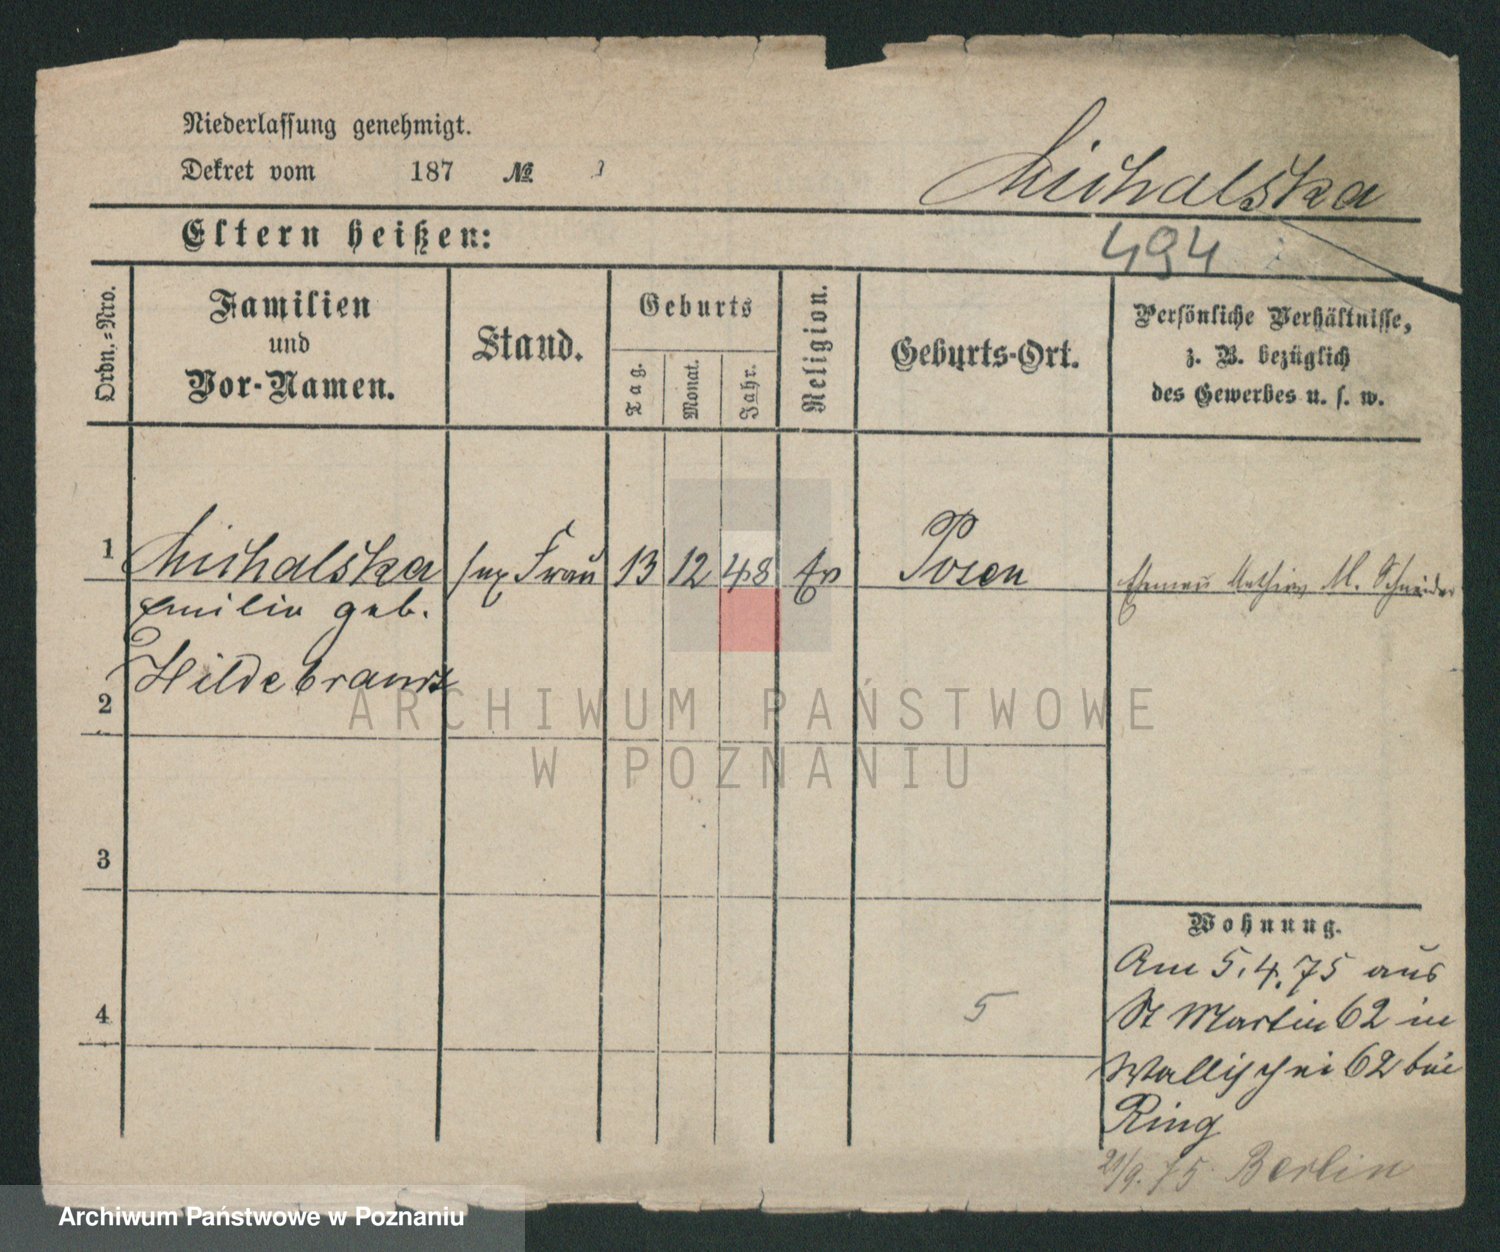 Niederlassung genehmigt.
Dekret vom 187 №
Michalska
Eltern heißen:
494
Ordn.-Nro.
Familien
und
Vor-Namen.
Stand.
Geburts
Tag.
Monat.
Jahr.
Religion.
Geburts-Ort.
Persönliche Verhältnisse,
z. B. bezüglich
des Gewerbes u. s. w.
1 Michalska Frau 13 12 48 Ev Posen M. Schneider
Emilie geb.
Hildebrandt
2
ARCHIWUM PAŃSTWOWE
W POZNANIU
3
Wohnung.
Am 5.4.75 aus
St Martin 62 in
Wallischei 62 bei
Ring
4
5
21/9.75 Berlin
Archiwum Państwowe w Poznaniu